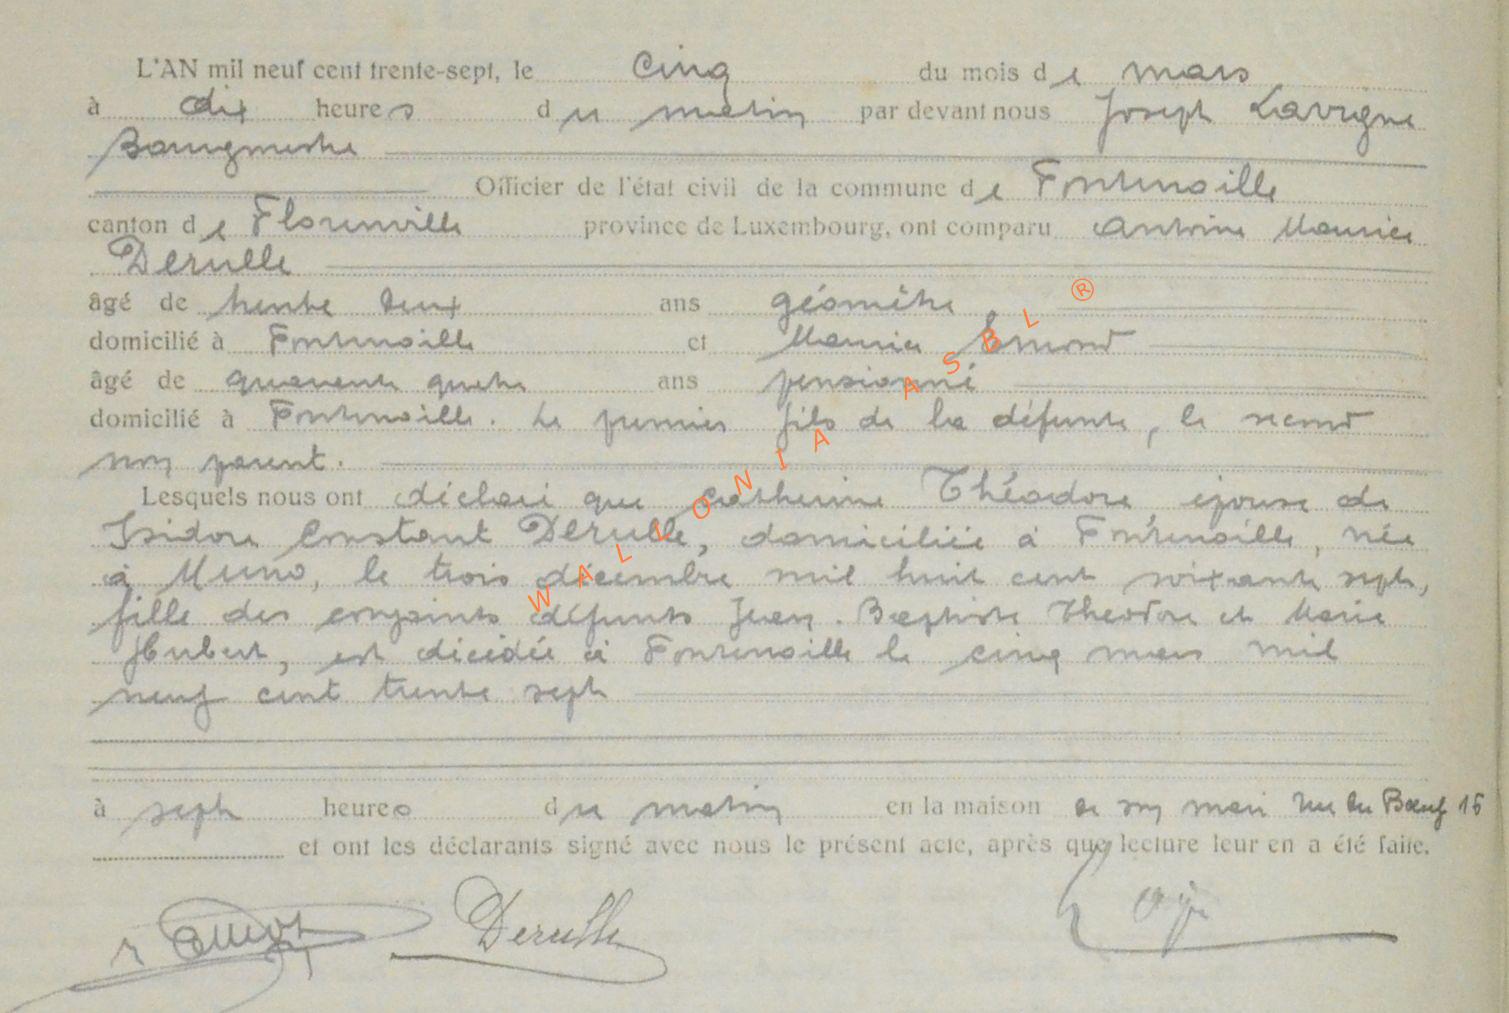 L'AN mil neuf cent trente-sept, le Cinq du mois de mars
à dix heures du matin par devant nous Joseph Lavigne
Bourgmestre
Officier de l'état civil de la commune de Fontenoille
canton de Florenville province de Luxembourg, ont comparu Antoine Maurice
Derulle
âgé de trente deux ans géomètre
domicilié à Fontenoille et Maurice Emond
âgé de quarante quatre ans pensionné
domicilié à Fontenoille. Le premier fils de la défunte, le second
non parent.
Lesquels nous ont déclaré que Catherine Théodore, épouse de
Isidore Constant Derulle, domiciliée à Fontenoille, née
à Muno, le trois décembre mil huit cent soixante sept,
fille des conjoints défunts Jean-Baptiste Theodore et Marie
Hubert, est décédée à Fontenoille le cinq mars mil
neuf cent trente sept
à sept heures du matin en la maison de son mari Rue du Bœuf 15
et ont les déclarants signé avec nous le présent acte, après que lecture leur en a été faite.
Derulle
WALLONIA ASBL ®